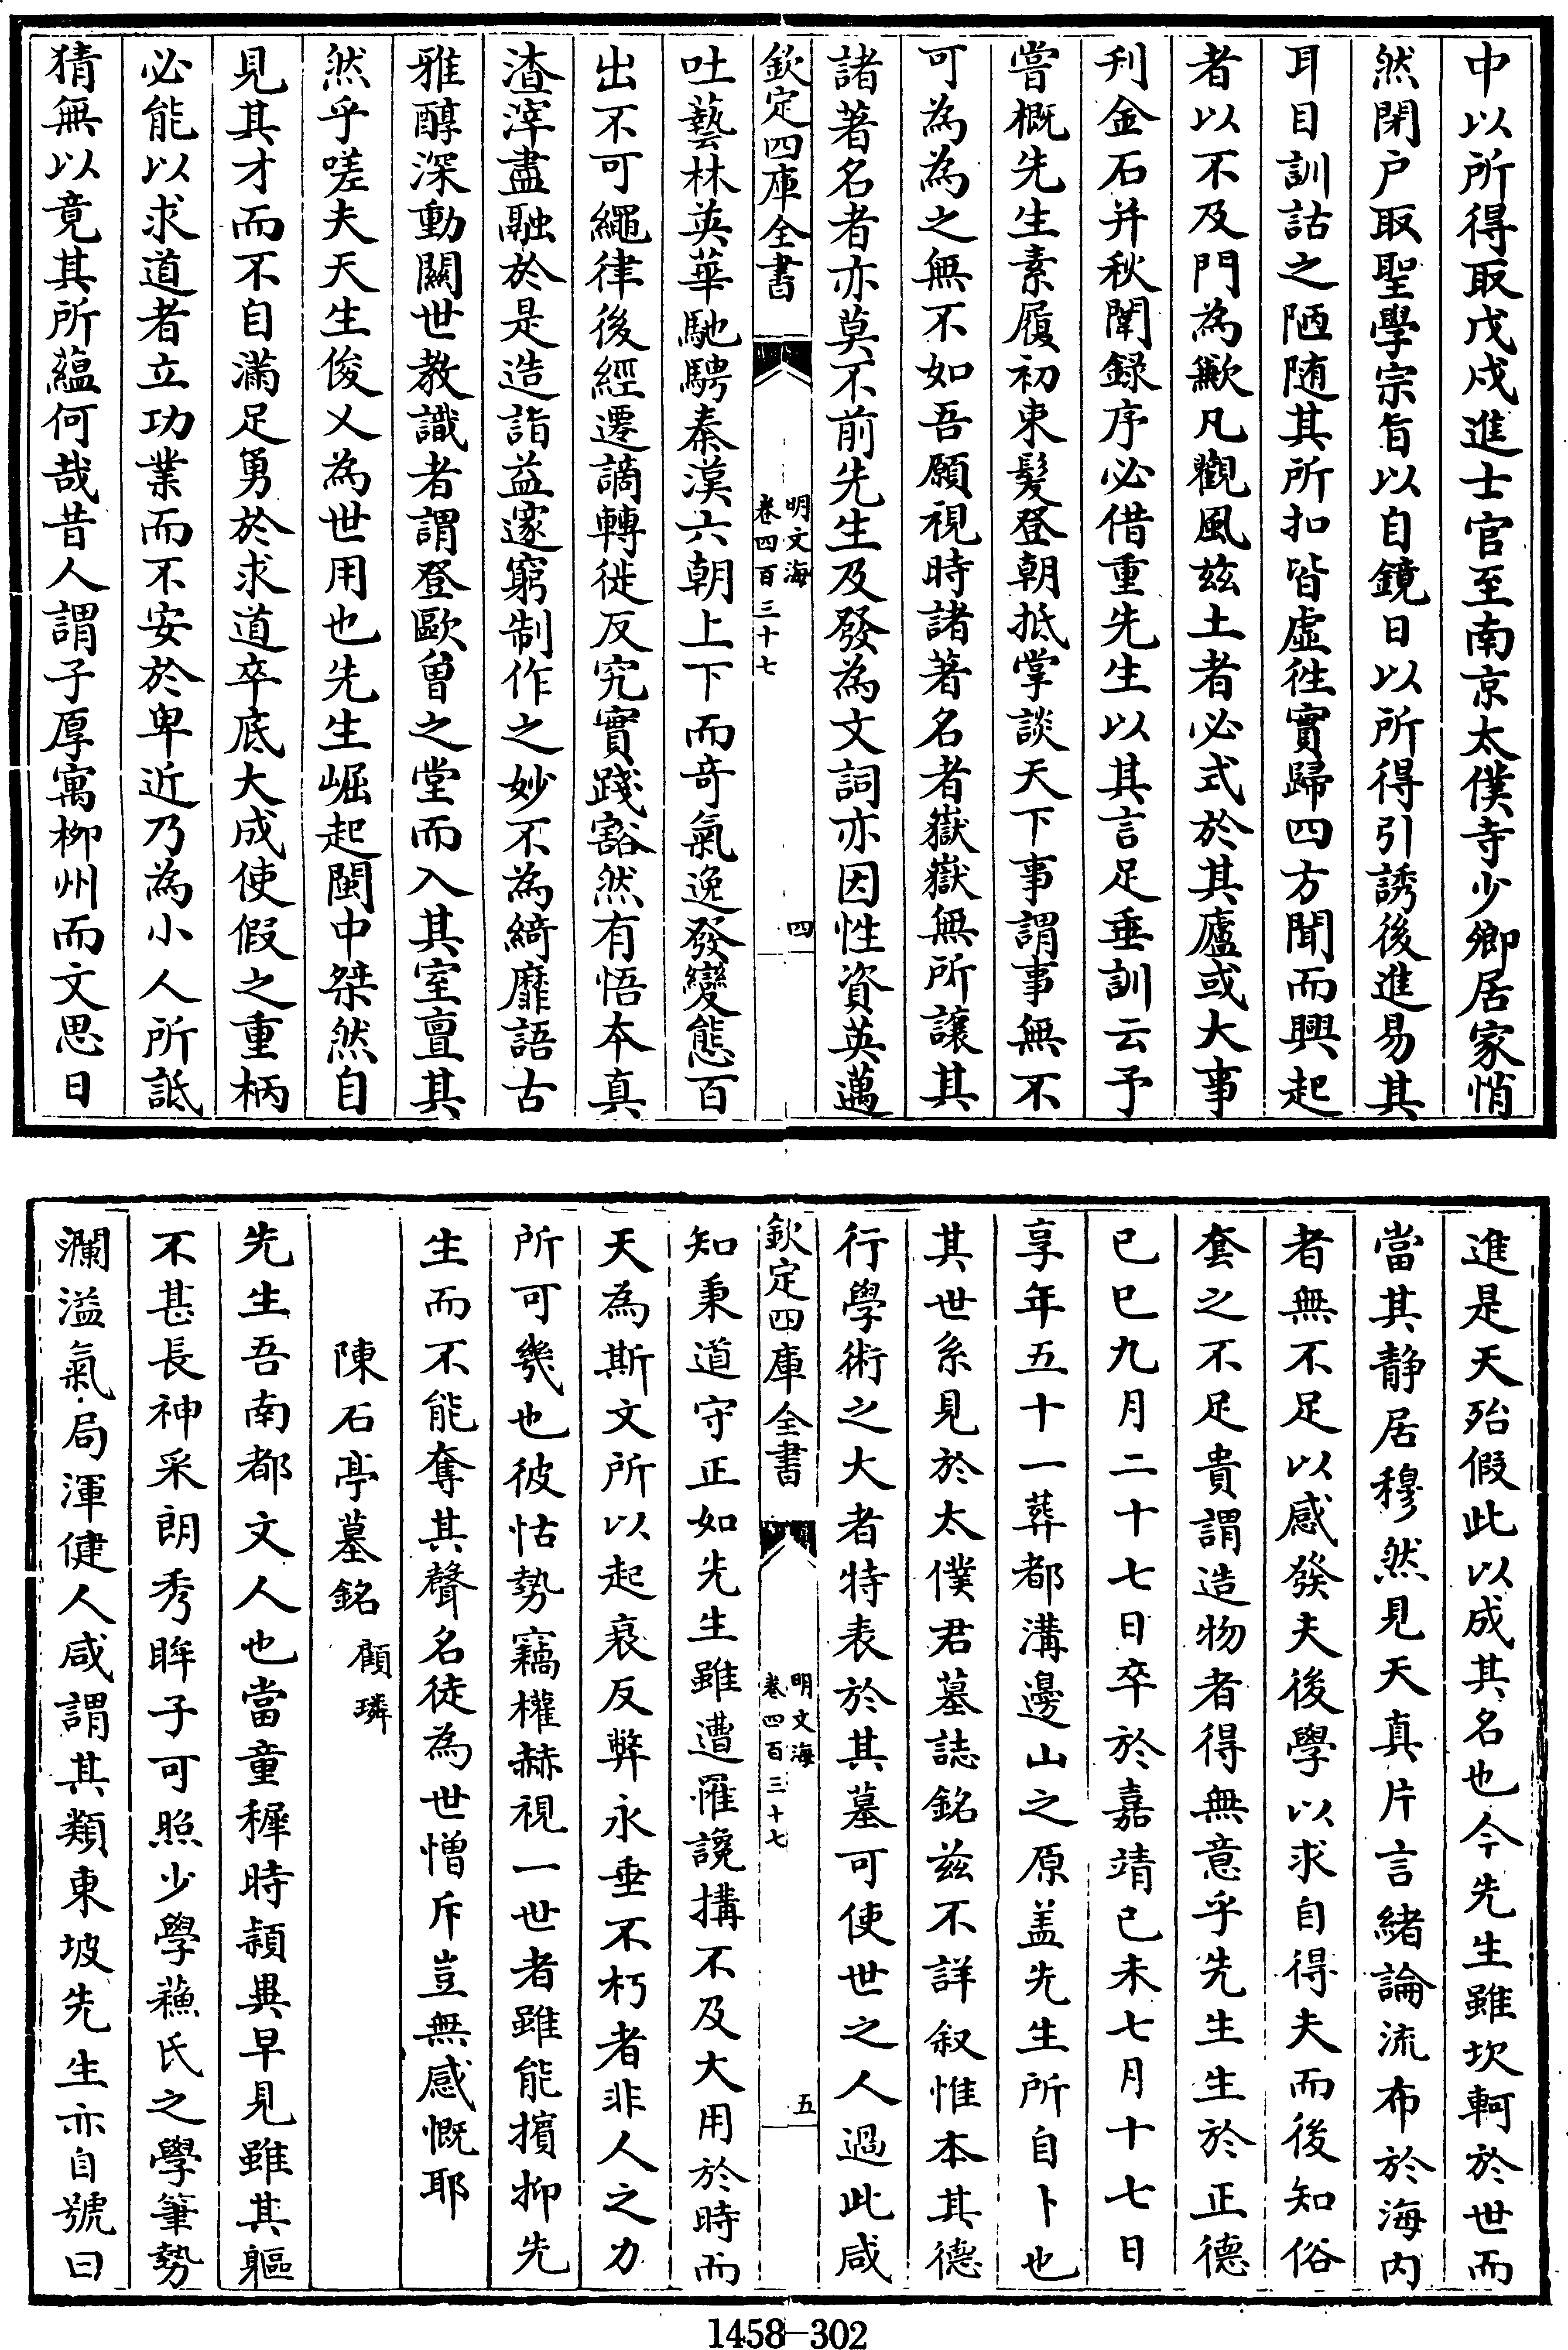 中以所得取戊戌進士官至南京太僕寺少卿居家悄
然閉户取聖學宗旨以自鏡日以所得引誘後進易其
耳目訓詁之陋随其所扣皆虚徃實歸四方聞而興起
者以不及門為歉凡觀風兹土者必式於其廬或大事
刋金石并秋闈録序必借重先生以其言足垂訓云予
嘗概先生素履初束髮登朝抵掌談天下事謂事無不
可為為之無不如吾願視時諸著名者嶽嶽無所讓其
諸著名者亦莫不前先生及發為文詞亦因性資英邁
欽定四庫全書
明文海
卷四百三十七
四
吐藝林英華馳騁秦漢六朝上下而竒氣逸發變態百
出不可繩律後經遷謫轉徙反究實踐豁然有悟本真
渣滓盡融於是造詣益邃窮制作之妙不為綺靡語古
雅醇深動關世教識者謂登歐曾之堂而入其室亶其
然乎嗟夫天生俊乂為世用也先生崛起閩中桀然自
見其才而不自滿足勇於求道卒底大成使假之重柄
必能以求道者立功業而不安於卑近乃為小人所詆
猜無以竟其所蘊何哉昔人謂子厚寓栁州而文思日
進是天殆假此以成其名也今先生雖坎軻於世而
當其静居穆然見天真片言緒論流布於海内
者無不足以感發夫後學以求自得夫而後知俗
套之不足貴謂造物者得無意乎先生生於正德
已巳九月二十七日卒於嘉靖已未七月十七日
享年五十一葬都溝邊山之原盖先生所自卜也
其世系見於太僕君墓誌銘兹不詳叙惟本其德
行學術之大者特表於其墓可使世之人過此咸
欽定四庫全書
明文海
卷四百三十七
五
知秉道守正如先生雖遭罹讒搆不及大用於時而
天為斯文所以起衰反弊永垂不朽者非人之力
所可幾也彼怙勢竊權赫視一世者雖能擯抑先
生而不能奪其聲名徒為世憎斥豈無感慨耶
陳石亭墓銘 顧璘
先生吾南都文人也當童穉時頴異早見雖其軀
不甚長神采朗秀眸子可照少學蘓氏之學筆勢
瀾溢氣局渾健人咸謂其類東坡先生亦自號曰
1458-302